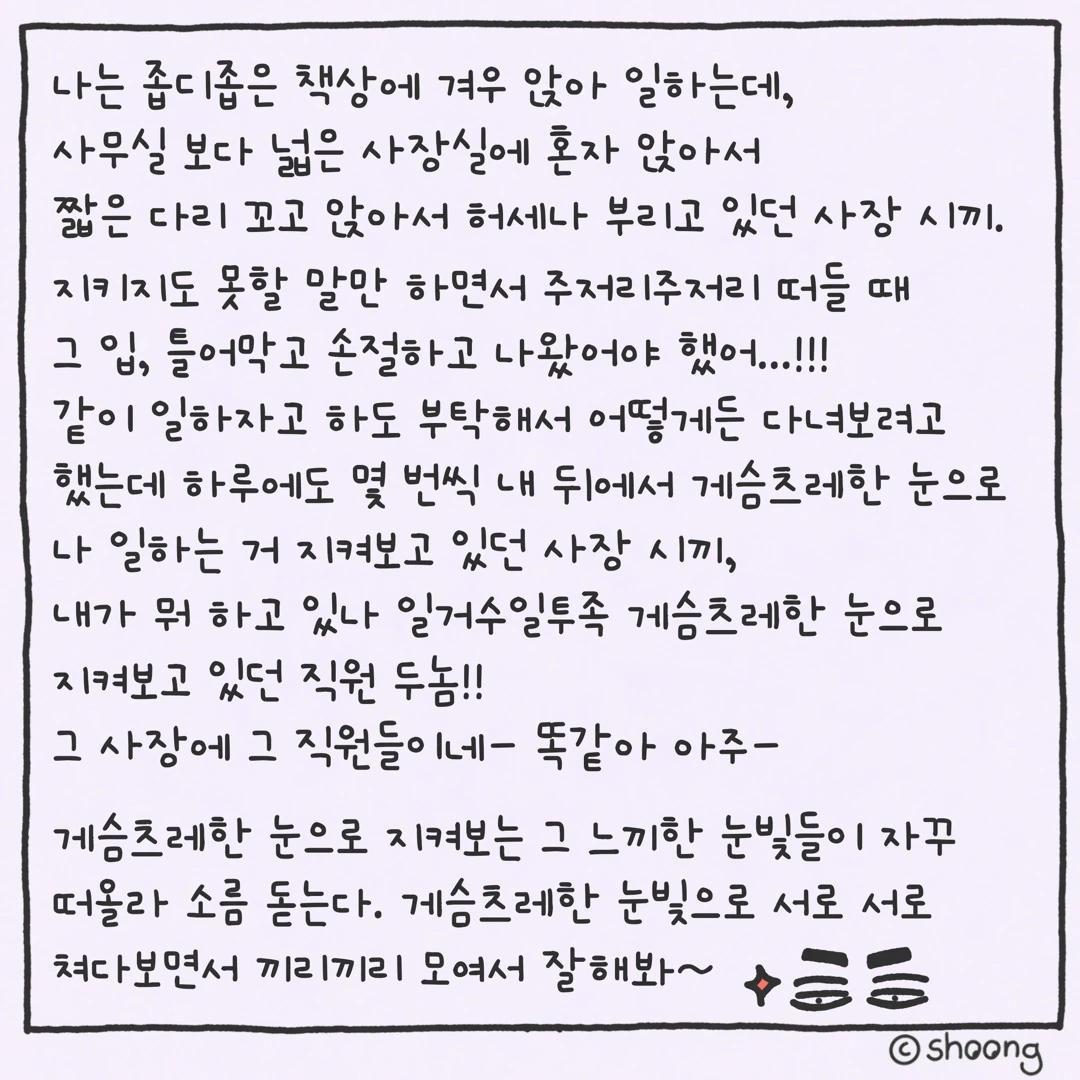 나는 좁디좁은 책상에 겨우 앉아 일하는데,
사무실 보다 넓은 사장실에 혼자 앉아서
짧은 다리 꼬고 앉아서 허세나 부리고 있던 사장 시끼.
지키지도 못할 말만 하면서 주저리주저리 떠들 때
그 입, 틀어막고 손절하고 나왔어야 했어...!!!
같이 일하자고 하도 부탁해서 어떻게든 다녀보려고
했는데 하루에도 몇 번씩 내 뒤에서 게슴츠레한 눈으로
나 일하는 거 지켜보고 있던 사장 시끼,
내가 뭐 하고 있나 일거수일투족 게슴츠레한 눈으로
지켜보고 있던 직원 두놈!!
그 사장에 그 직원들이네- 똑같아 아주-
게슴츠레한 눈으로 지켜보는 그 느끼한 눈빛들이 자꾸
떠올라 소름 돋는다. 게슴츠레한 눈빛으로 서로 서로
쳐다보면서 끼리끼리 모여서 잘해봐~
©shoong